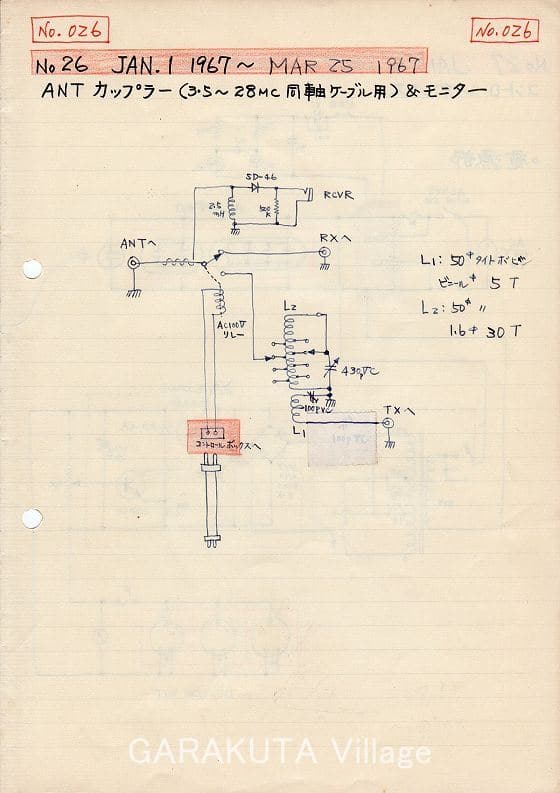 No. 026
No. 026
No 26 JAN. 1 1967〜 MAR 25 1967
ANT カップラー (3.5〜28MC 同軸ケーブル用) & モニター
SD-46
2.5
mH
RCVR
ANTへ
RXへ
AC100V
リレー
L2
430PVC
100PVC
L1
TXへ
100PVC
コントロールボックスへ
L1: 50φ タイトボビン
ビニール 5T
L2: 50φ 〃
1.6φ 30T
GARAKUTA Village